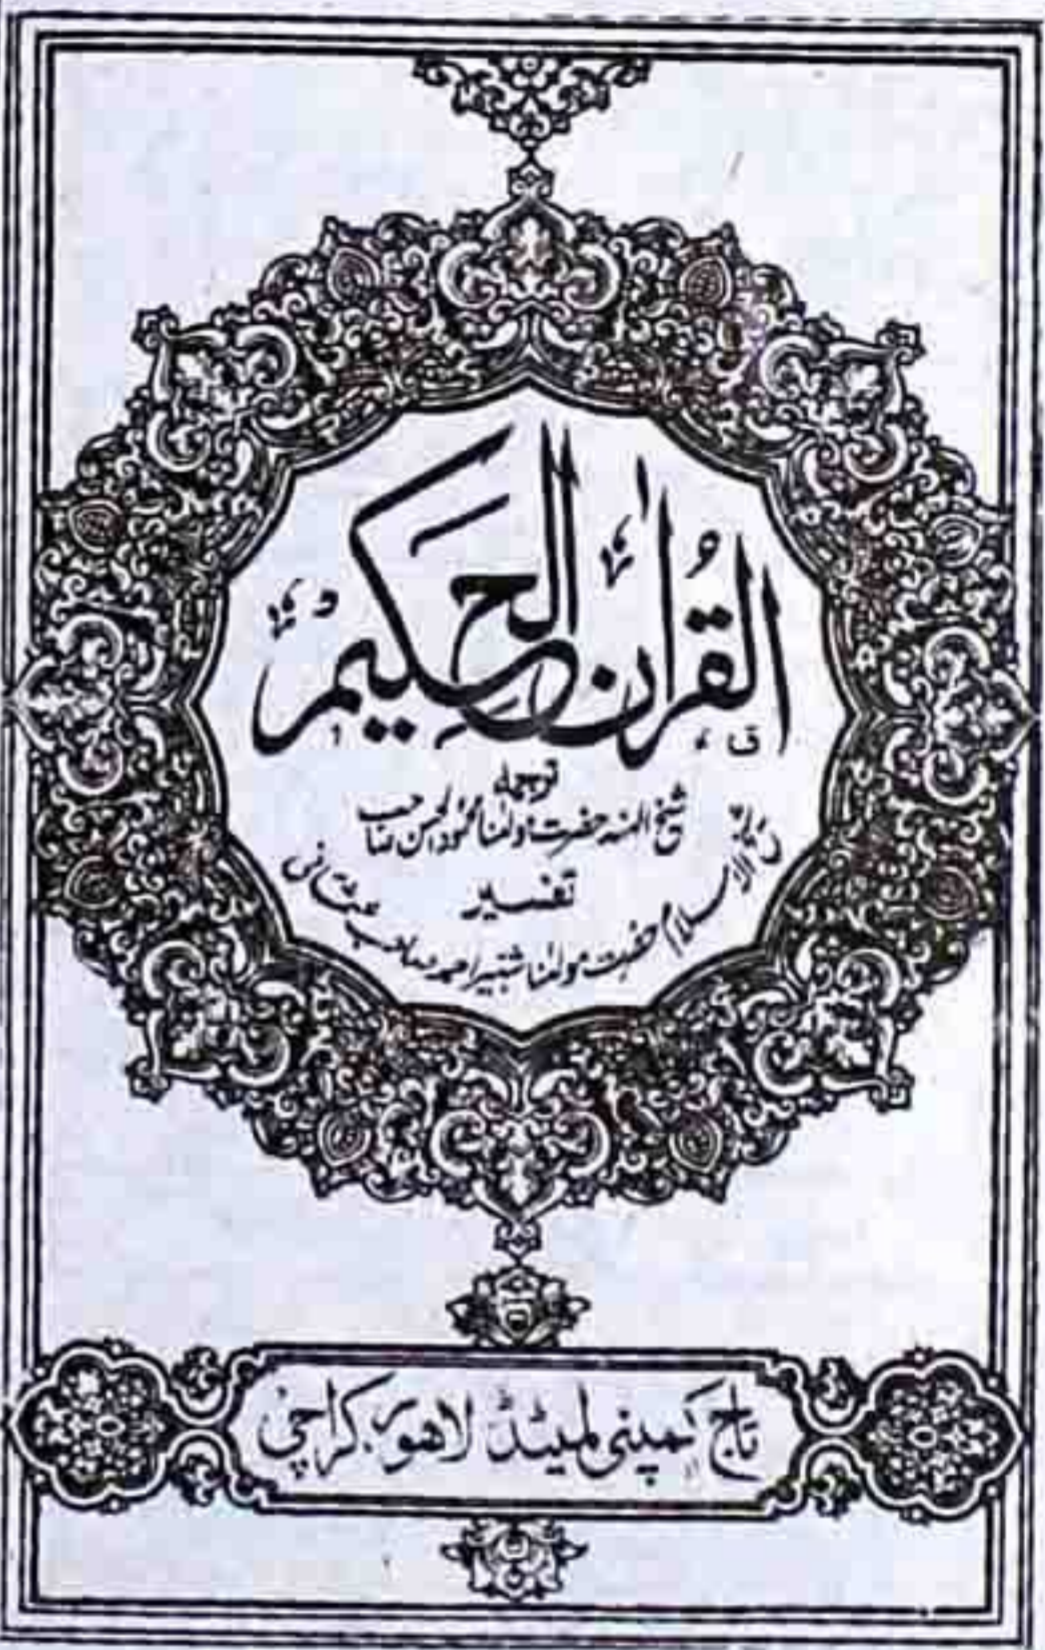 القرآن الحکیم
ترجمہ
شیخ الہند حضرت مولٰنا محمود الحسن صاحب
تفسیر
شیخ الاسلام حضرت مولٰنا شبیر احمد صاحب عثمانی
تاج کمپنی لمیٹڈ لاھور، کراچی